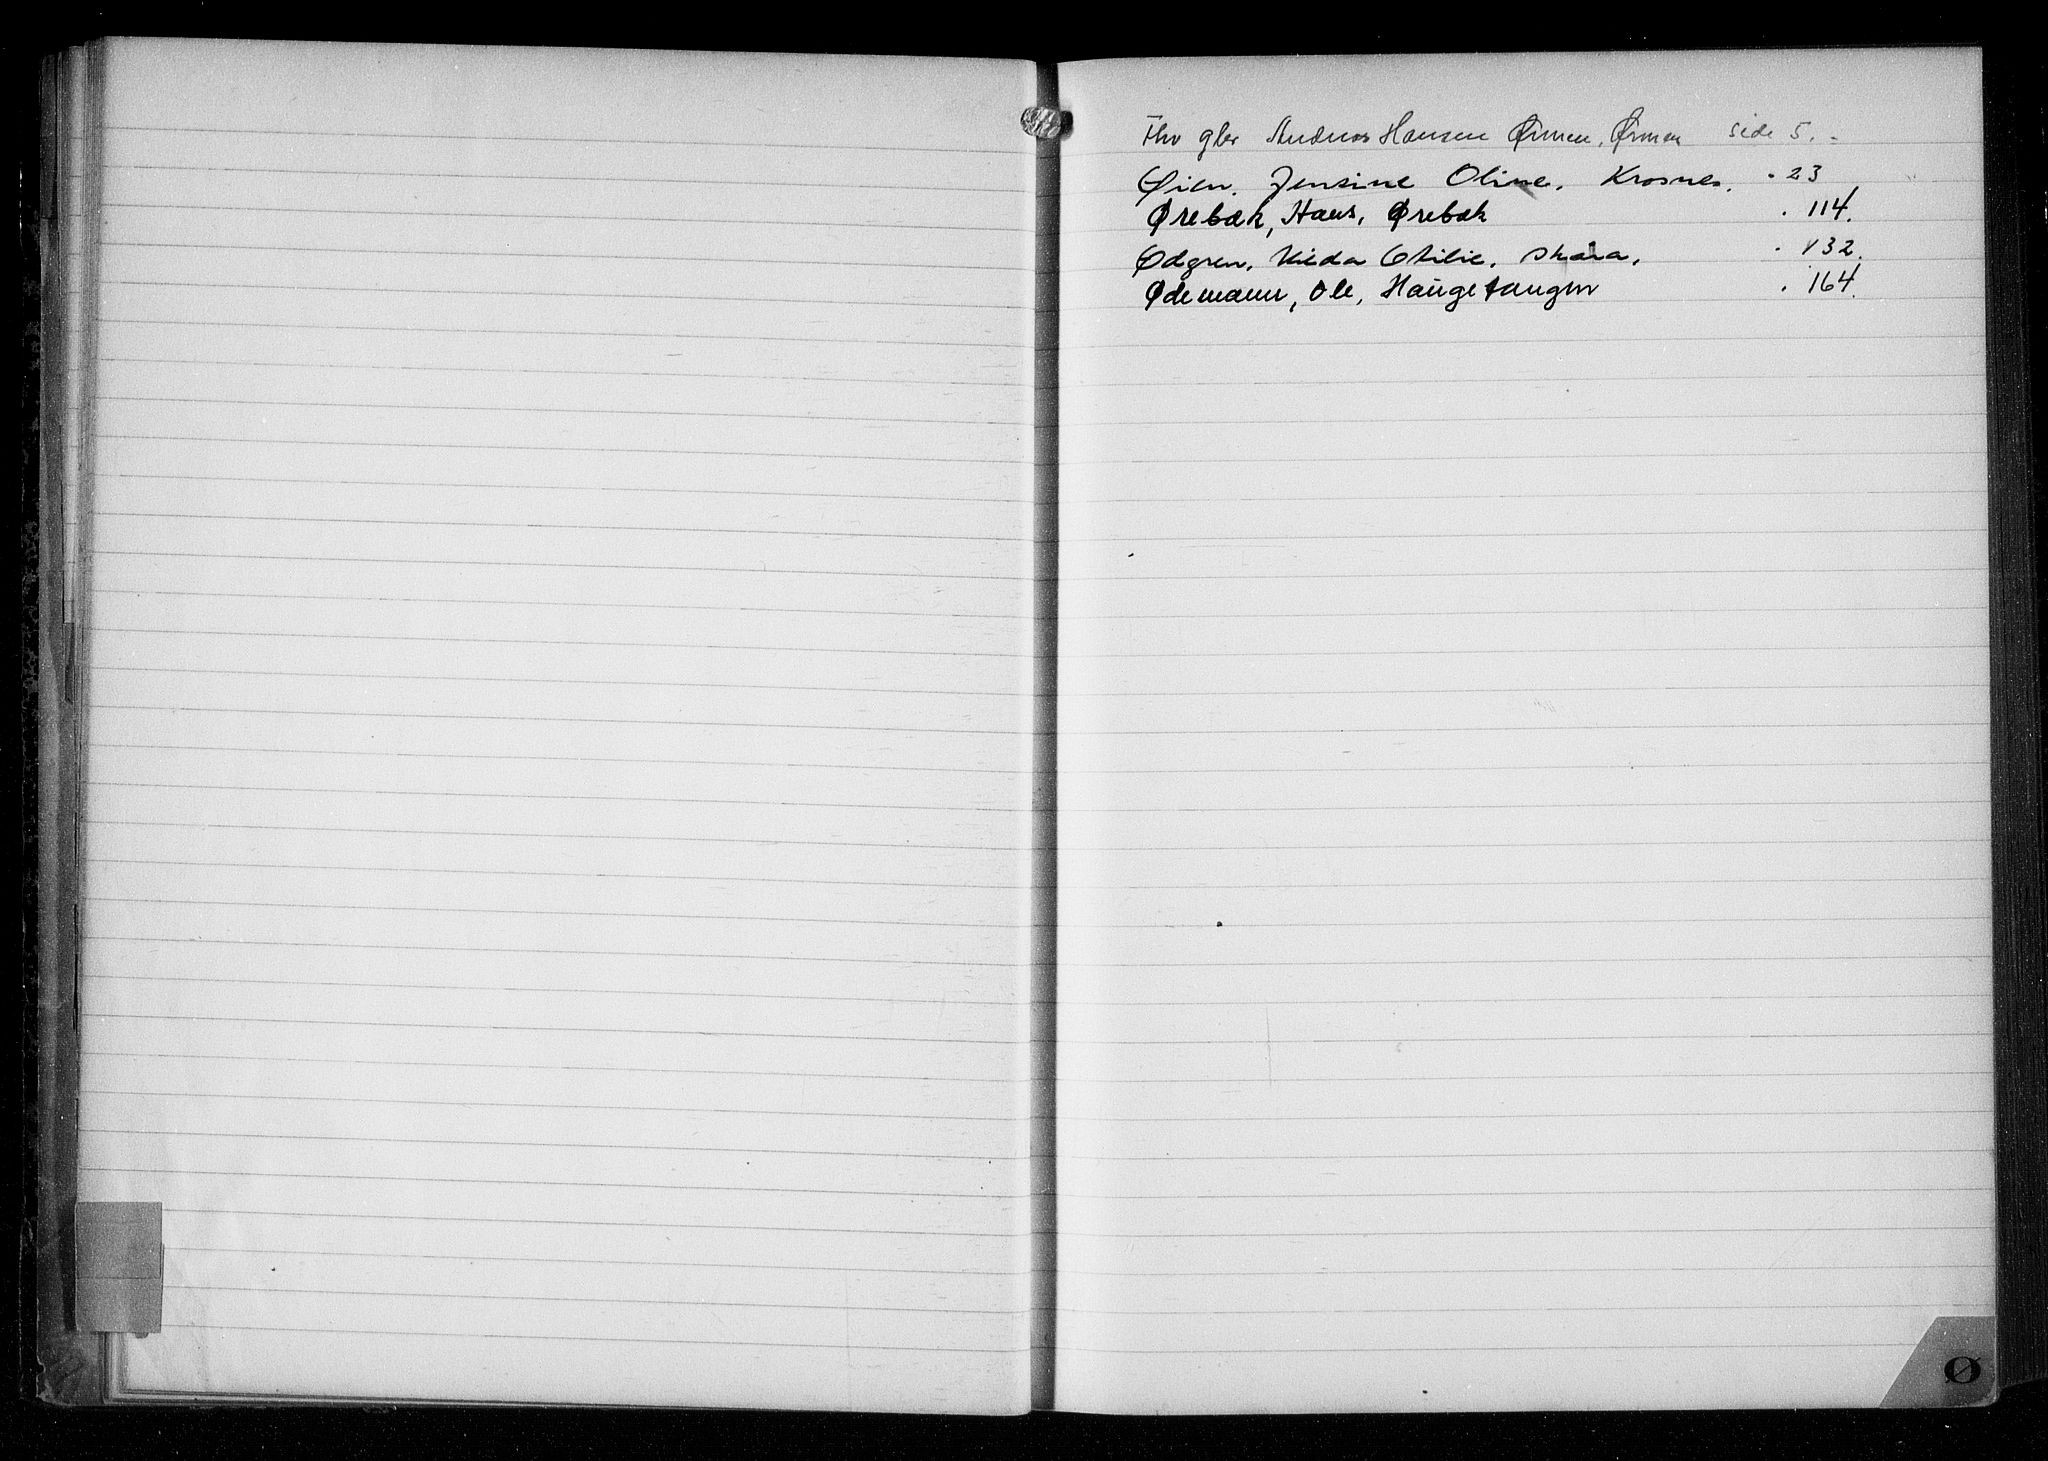 Andreas Hansen Ørmen, Ørmen side 5.
Øien, Jensine Oline, Krosnes. " 23
Ørebæk, Hans, Ørebæk " 114.
Ødgren, Hilda Otilie, Skåra, " 132.
Ødemann, Ole, Haugetangen " 164.
Ø